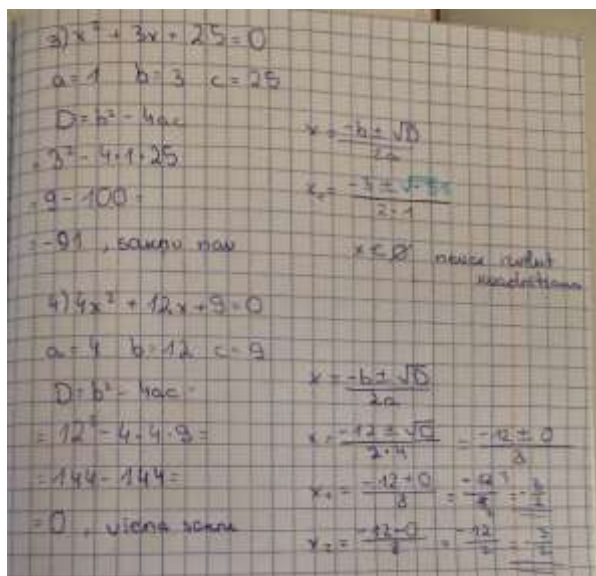 3) x² + 3x + 25 = 0
a = 1 b = 3 c = 25
D = b² - 4ac
= 3² - 4·1·25
= 9 - 100 =
= -91 , sakņu nav
x = (-b ± √D)/2a
x₁ = /2·1
x ∈ ∅
4) 4x² + 12x + 9 = 0
a = 4 b = 12 c = 9
D = b² - 4ac =
= 12² - 4·4·9 =
= 144 - 144 =
= 0 , viena sakne
x = (-b ± √D)/2a
x = (-12 ± √0)/2·4 = (-12 ± 0)/8
x₁ = (-12+0)/8 =
x₂ = (-12-0)/8 =